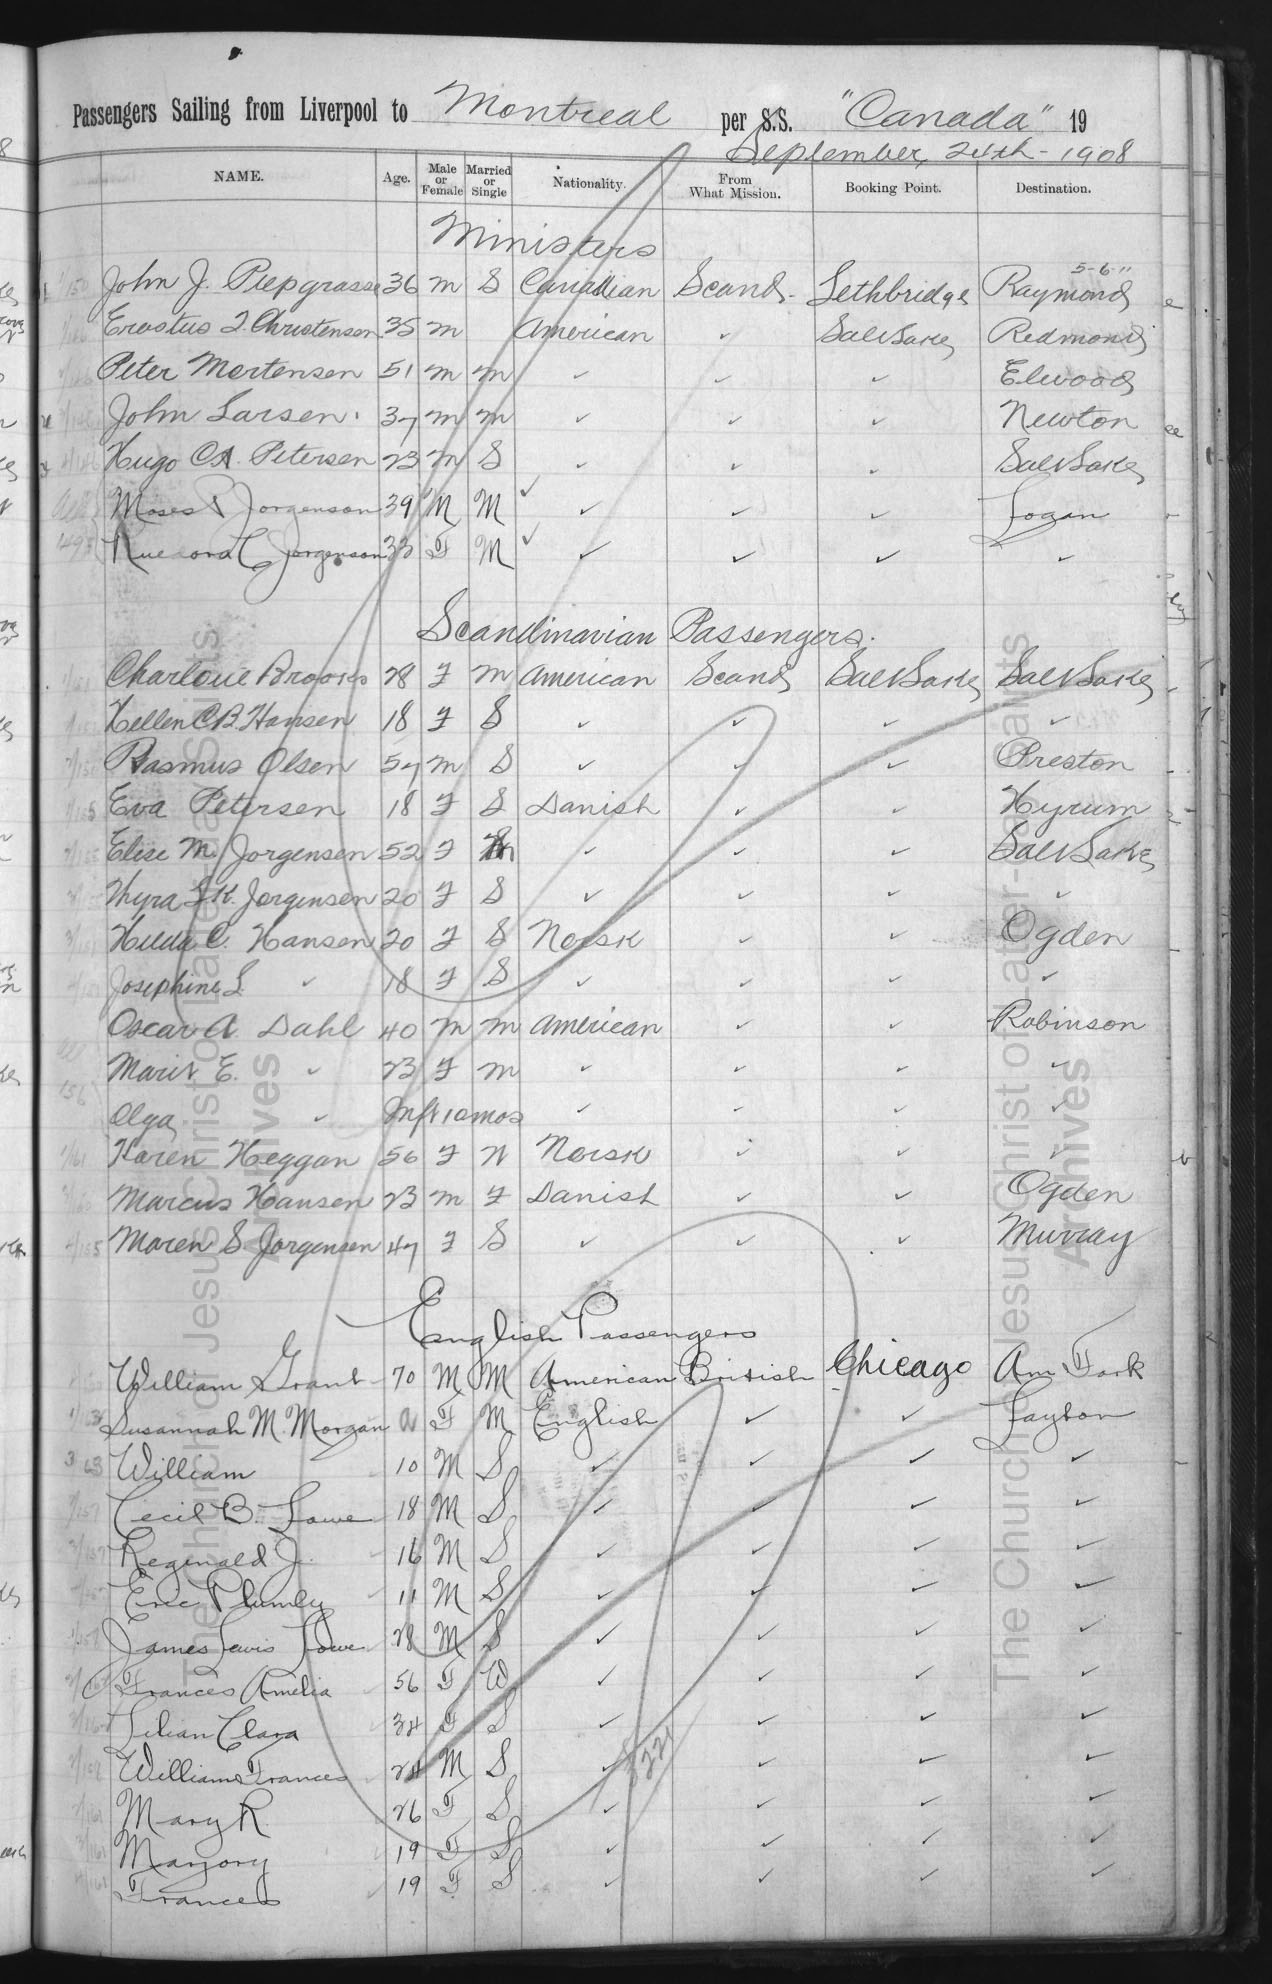 Passengers Sailing from Liverpool to Montreal per S.S. "Canada" 19
September, 24th - 1908
NAME. Age. Male or Female Married or Single Nationality. From What Mission. Booking Point. Destination.
Ministers
5-6"
John J. Piepgrasse 36 m S Canadian Scand. Lethbridge Raymond
Erastus L. Christensen 35 m American ✓ Salt Lake Redmond
Peter Mortensen 51 m m ✓ ✓ ✓ Elwood
John Larsen 37 m m ✓ ✓ ✓ Newton
Hugo CA. Petersen 23 m S ✓ ✓ ✓ Salt Lake
Moses Jorgenson 39 M M ✓ ✓ ✓ Logan
C Jorgenson 33 F M ✓ ✓ ✓ ✓
Scandinavian Passengers.
Charlotte Brooks 28 F m American Scand Salt Lake Salt Lake
Hellen C.B. Hansen 18 F S ✓ ✓ ✓ ✓
Rasmus Olsen 57 m S ✓ ✓ ✓ Preston
Eva Petersen 18 F S Danish ✓ ✓ Hyrum
Elise M. Jorgensen 52 F ✓ ✓ ✓ Salt Lake
Thyra L.K. Jorgensen 20 F S ✓ ✓ ✓ ✓
Hilda C. Hansen 20 F S Norsk ✓ ✓ Ogden
Josephine L. ✓ 18 F S ✓ ✓ ✓ ✓
Oscar A. Dahl 40 m m American ✓ ✓ Robinson
Marit E. ✓ 23 F m ✓ ✓ ✓ ✓
Olga ✓ Inft 10 mos ✓ ✓ ✓ ✓
Karen Heggan 56 F W Norsk ✓ ✓ ✓
Marcus Hansen 23 m F Danish ✓ ✓ Ogden
Maren S Jorgensen 47 F S ✓ ✓ ✓ Murray
English Passengers
William Grant 70 M M American British Chicago Am Fork
Susannah M. Morgan a F M English ✓ ✓ Layton
William 10 M S ✓ ✓ ✓ ✓
Cecil B. Lowe 18 M S ✓ ✓ ✓ ✓
Reginald J. 16 M S ✓ ✓ ✓ ✓
Eric Plumley 11 M S ✓ ✓ ✓ ✓
James Lewis Lowe 28 M S ✓ ✓ ✓ ✓
Frances Amelia 56 F W ✓ ✓ ✓ ✓
Lilian Clara 34 F S ✓ ✓ ✓ ✓
William Frances 24 M S ✓ ✓ ✓ ✓
Mary R. 26 F S ✓ ✓ ✓ ✓
Marjory 19 F S ✓ ✓ ✓ ✓
Frances 19 F S ✓ ✓ ✓ ✓
The Church of Jesus Christ of Latter-day Saints
Archives
The Church of Jesus Christ of Latter-day Saints
Archives